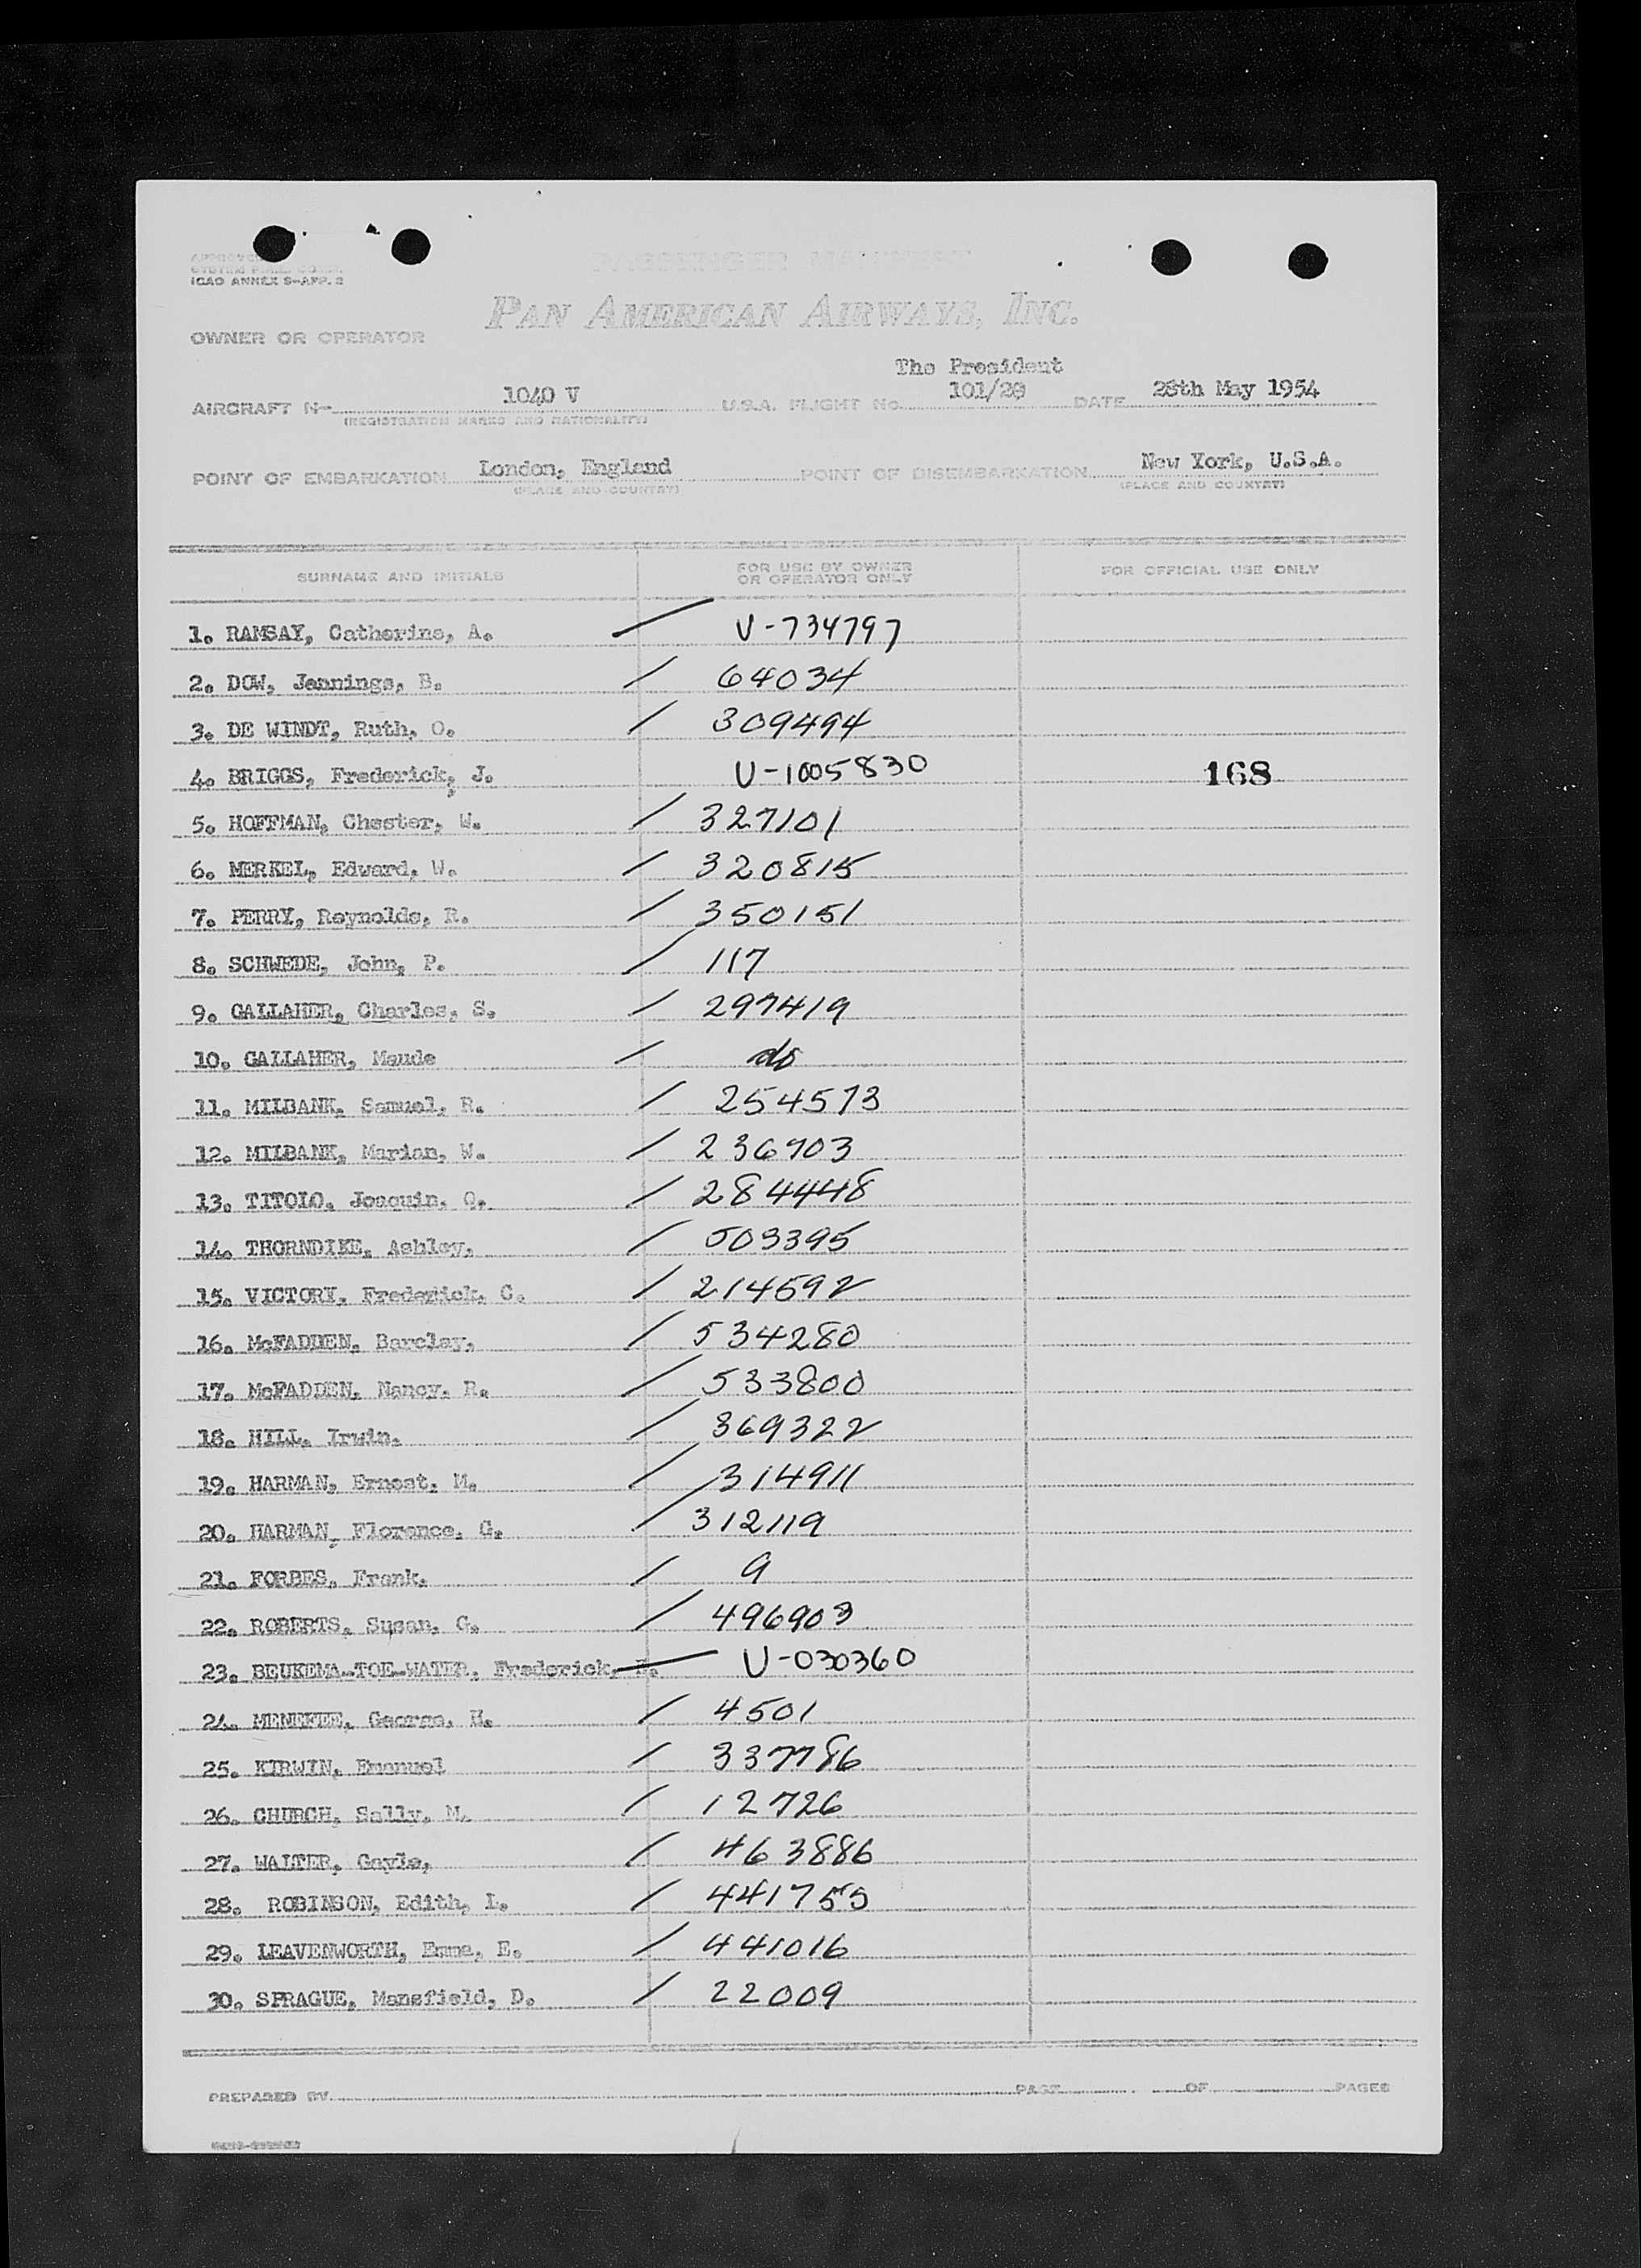 APPROVED
ICAO ANNEX 9-APP. 2
PASSENGER MANIFEST
PAN AMERICAN AIRWAYS, INC.
OWNER OR OPERATOR
The President
AIRCRAFT N- 1040 V U.S.A. FLIGHT No. 101/28 DATE 28th May 1954
(REGISTRATION MARKS AND NATIONALITY)
POINT OF EMBARKATION London, England POINT OF DISEMBARKATION New York, U.S.A.
(PLACE AND COUNTRY) (PLACE AND COUNTRY)
SURNAME AND INITIALS FOR USE BY OWNER OR OPERATOR ONLY FOR OFFICIAL USE ONLY
1. RAMSAY, Catherine, A. / V-734797
2. DOW, Jennings, B. / 64034
3. DE WINDT, Ruth, O. / 309494
4. BRIGGS, Frederick, J. V-1005830 168
5. HOFFMAN, Chester, W. / 327101
6. MERKEL, Edward, W. / 320815
7. PERRY, Reynolds, R. / 350151
8. SCHWEDE, John, P. / 117
9. GALLAHER, Charles, S. / 297419
10. GALLAHER, Maude / do
11. MILBANK, Samuel, R. / 254573
12. MILBANK, Marian, W. / 236703
13. TITOLO, Joaquin, O. / 284448
14. THORNDIKE, Ashley, / 503395
15. VICTORY, Frederick, C. / 214592
16. McFADDEN, Barclay, / 534280
17. McFADDEN, Nancy, R. / 533800
18. HILL, Irwin, / 369322
19. HARMAN, Ernest, M. / 314911
20. HARMAN, Florence, G. / 312119
21. FORBES, Frank, / 9
22. ROBERTS, Susan, G. / 496903
23. BEUKEMA-TOE-WATER, Frederick, V-030360
24. MENEFEE, George, H. / 4501
25. KIRWIN, Emanuel / 337786
26. CHURCH, Sally, M. / 12726
27. WALTER, Gayle, / 463886
28. ROBINSON, Edith, L. / 441755
29. LEAVENWORTH, Emma, E. / 441016
30. SPRAGUE, Mansfield, D. / 22009
PREPARED BY PAGE OF PAGES